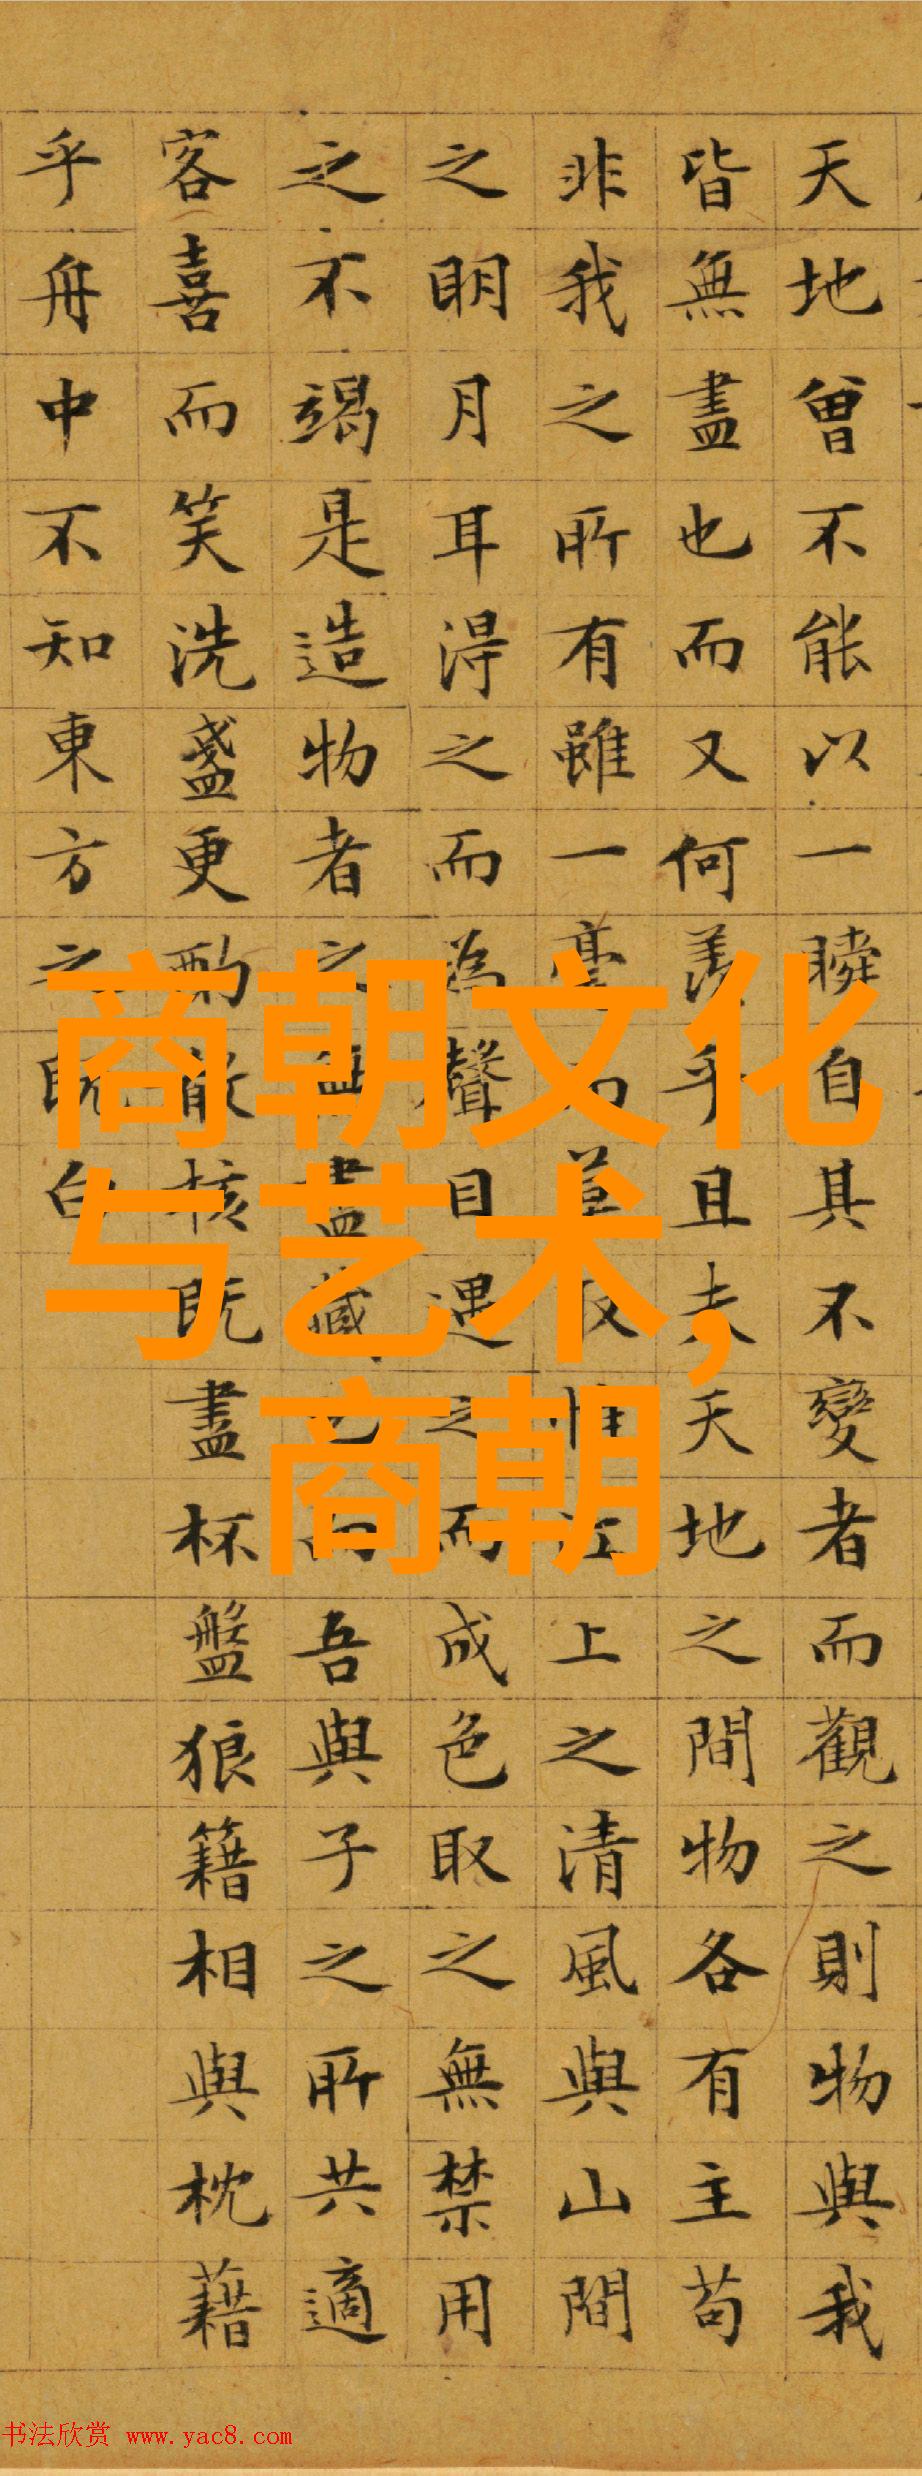 天地曾不能以一瞬自其不變者而觀之則物與我
皆無盡也而又何羨乎且夫天地之間物各有主苟
非我之所有雖一毫而莫取惟江上之清風與山間
之明月耳得之而為聲目遇之而成色取之無禁用
之不竭是造物者之無盡藏也而吾與子之所共適
客喜而笑洗盞更酌肴核既盡杯盤狼籍相與枕藉
乎舟中不知東方之既白
商朝文化
与艺术,
商朝
书法欣赏 www.yac8.com